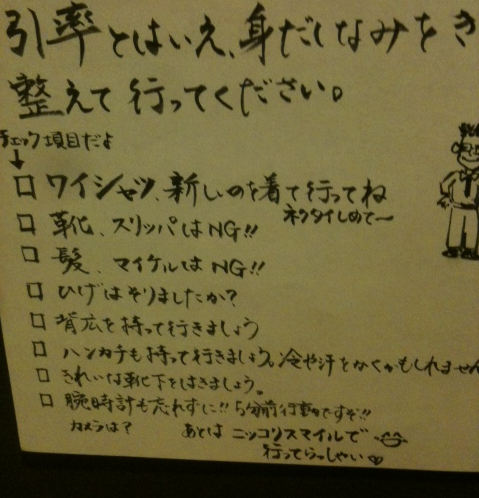 引率とはいえ、身だしなみをき
整えて行ってください。
チェック項目だよ
↓
□ ワイシャツ、新しいのを着て行ってね
ネクタイしめて〜
□ 靴、スリッパはNG!!
□ 髪、マイケルはNG!!
□ ひげはそりましたか?
□ 背広を持って行きましょう
□ ハンカチも持って行きましょう。冷や汗をかくかもしれません
□ きれいな靴下をはきましょう。
□ 腕時計も忘れずに!! 5分前行動ですぞ!!
カメラは? あとは ニッコリスマイルで
行ってらっしゃい♡